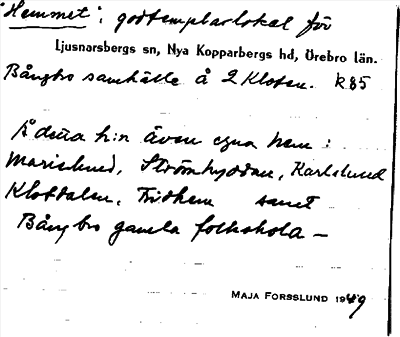 "Hemmet", godtemplarlokal för
Ljusnarsbergs sn, Nya Kopparbergs hd, Örebro län.
Bångbro samhälle å 2 Kloten. k 85
Å detta h:n även egna hem:
Marielund, Strömhyddan, Karlslund
Klockdalen, Fridhem samt
Bångbro gamla folkskola —
MAJA FORSSLUND 1949